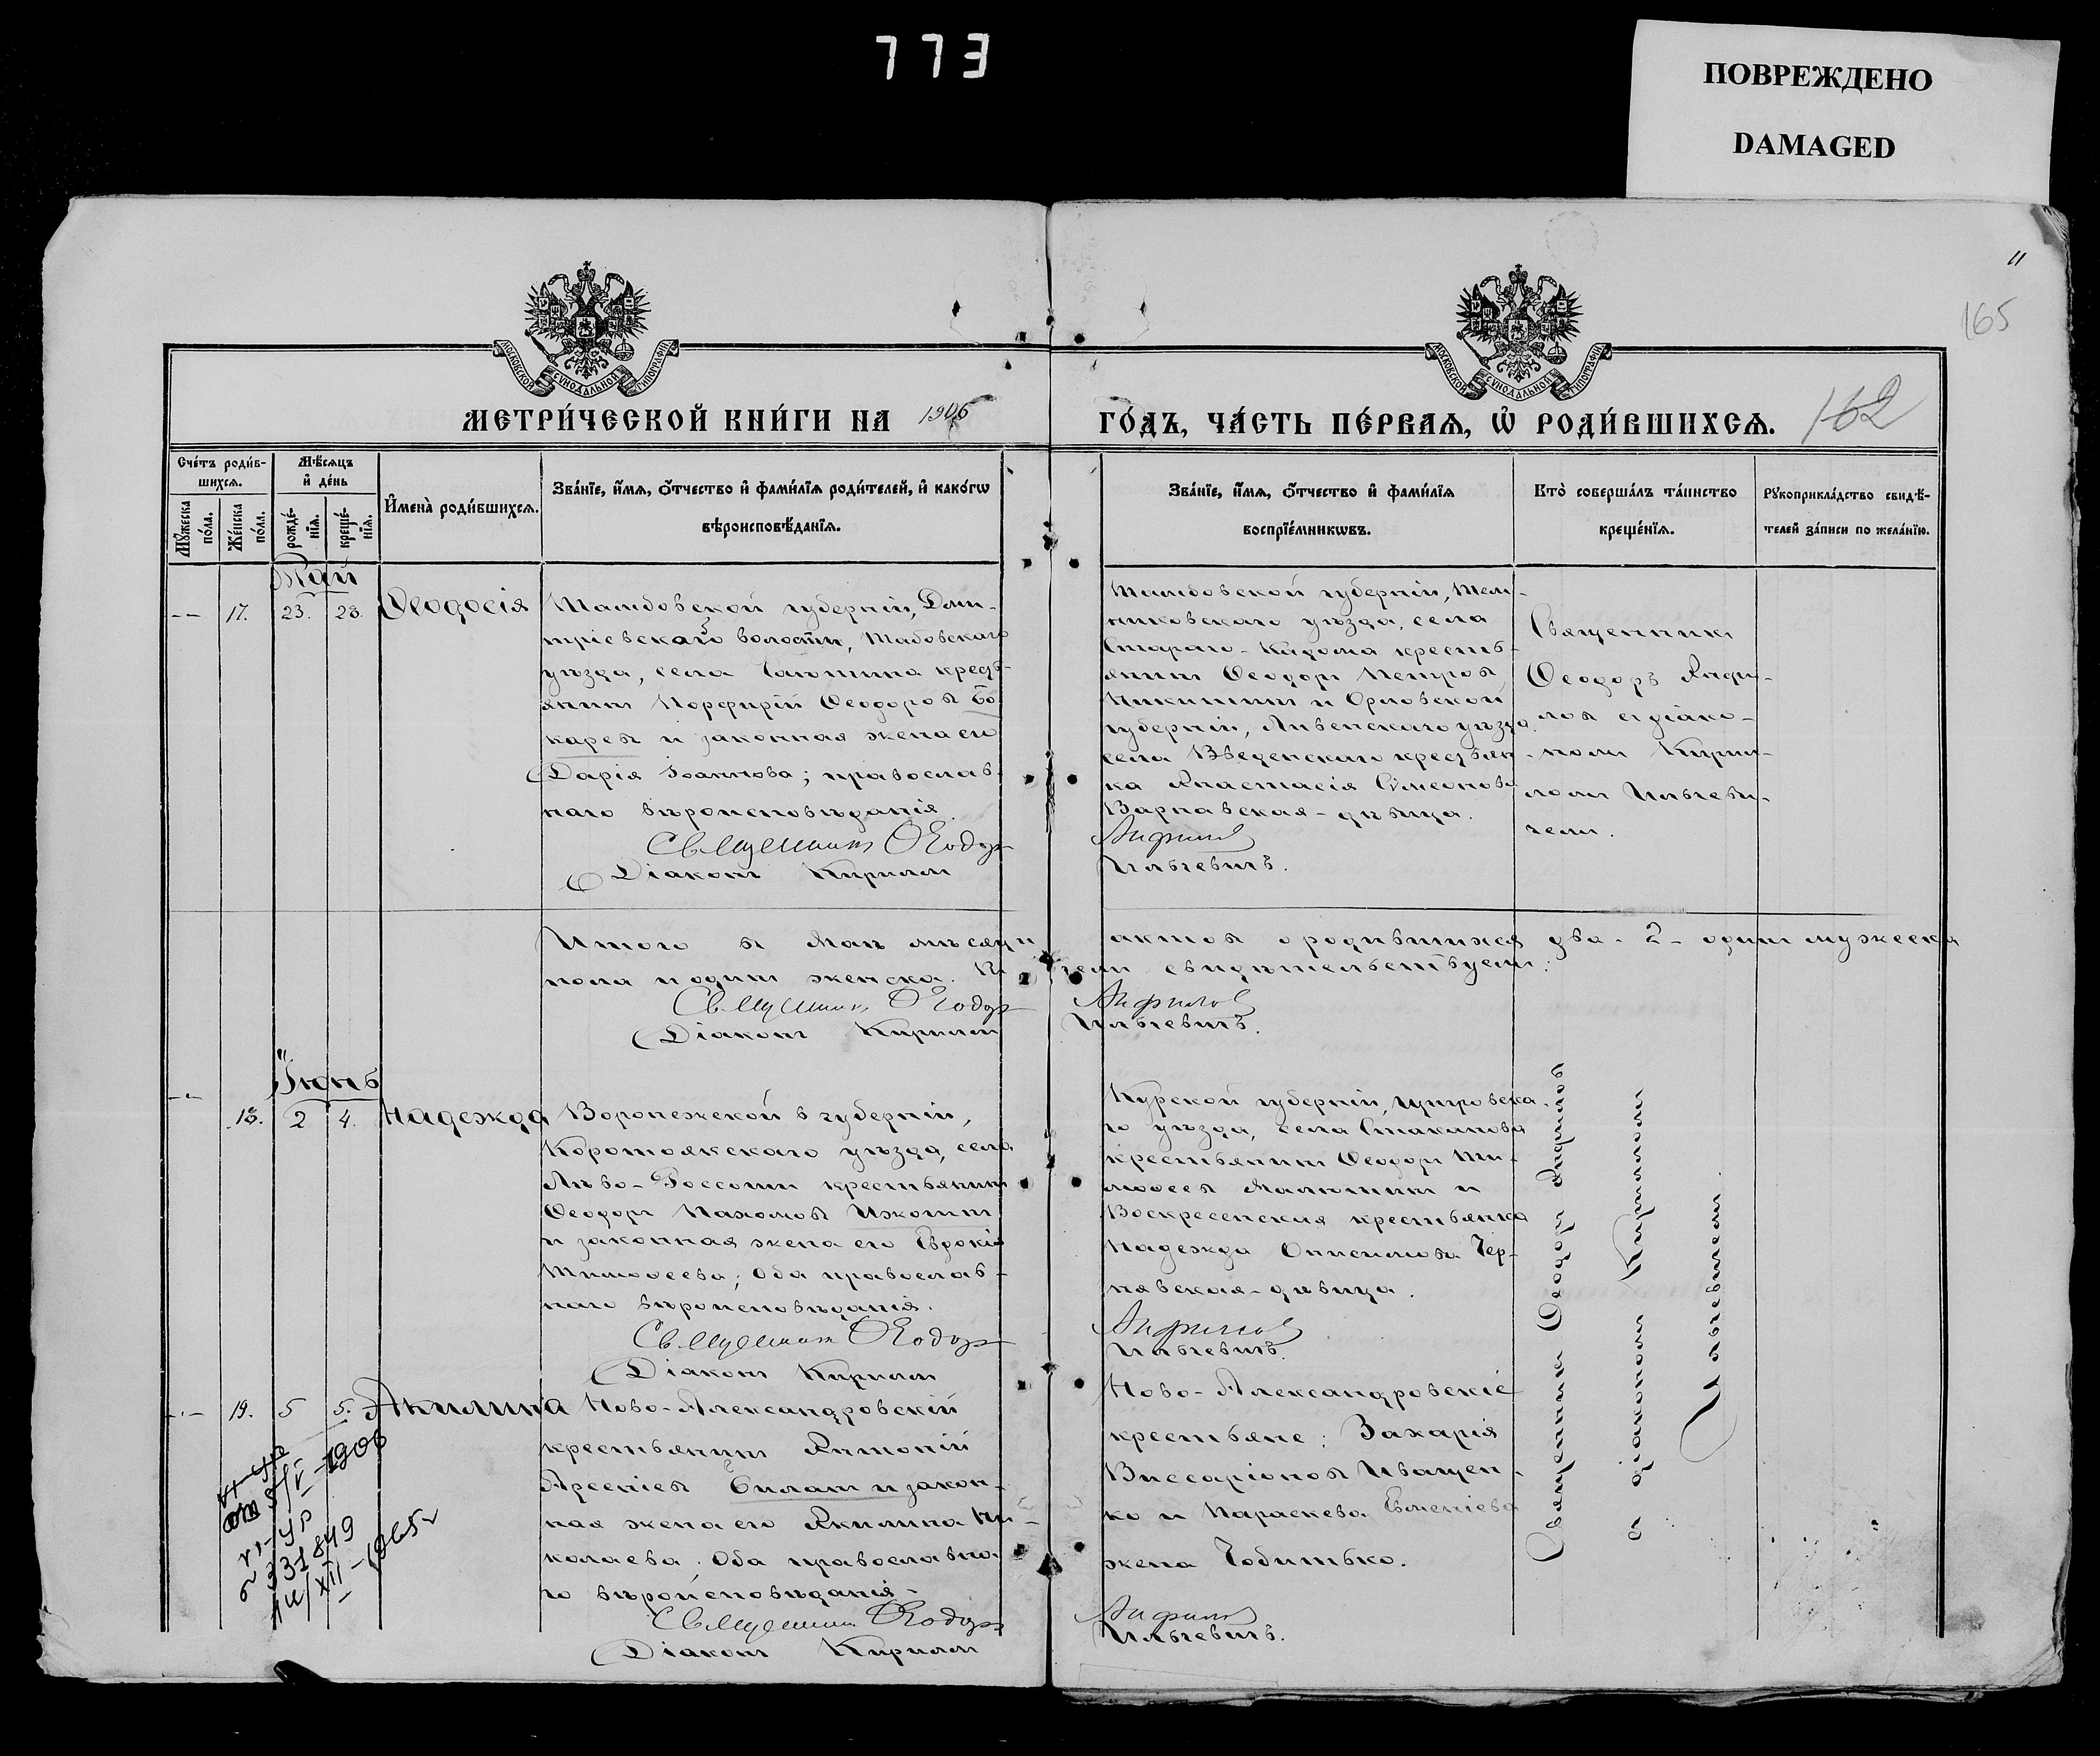 773
ПОВРЕЖДЕНО
DAMAGED
11
165
162
МОСКОВСКОЙ СѴНОДАЛЬНОЙ ТИПОГРАФІИ
МОСКОВСКОЙ СѴНОДАЛЬНОЙ ТИПОГРАФІИ
МЕТРИ́ЧЕСКОЙ КНИ́ГИ НА 1906 ГО́ДЪ, ЧА́СТЬ ПЕ́РВАѦ, Ѡ҆ РОДИ́ВШИХСѦ.
Сче́тъ роди́в-
шихсѧ.
Мѹ́жеска по́ла.
Же́нска по́ла.
Мѣ́сѧцъ
и҆ де́нь
рожде́-
нїѧ.
креще́-
нїѧ.
И҆мена̀ роди́вшихсѧ.
Зва́нїе, и҆́мѧ, ѻ҆́тчество и҆ фами́лїѧ роди́телей, и҆ како́гѡ
вѣроисповѣ́данїѧ.
Зва́нїе, и҆́мѧ, ѻ҆́тчество и҆ фами́лїѧ
воспрїе́мникѡвъ.
Кто̀ соверша́лъ та́инство
креще́нїѧ.
Рѹкоприкла́дство свидѣ́-
телей за́писи по жела́нїю.
Май
17. 23. 28. Ѳеодосія
Тамбовской губерніи, Дми-
тріевской волости, Тамбовскаго
уѣзда, села кресть-
янинъ Порфирій Ѳеодоровъ Бо-
каревъ и законная жена его
Дарія Іоаннова; православ-
наго вѣроисповѣданія.
Священникъ Ѳеодоръ
Діаконъ Кириллъ
Тамбовской губерніи, Тем-
никовскаго уѣзда, села
Стараго-Кадома кресть-
янинъ Ѳеодоръ Петровъ
Никитинъ и Орловской
губерніи, Ливенскаго уѣзда
села Введенскаго крестьян-
ка Анастасія Сѵмеонова
Варнавская-дѣвица.
Анфиловъ
Ильчевичъ.
Священникъ
Ѳеодоръ Анфи-
ловъ съ діако-
номъ Кирил-
ломъ Ильчеви-
чемъ.
Итого въ Маѣ мѣсяцѣ актовъ о родившихся два-2-одинъ мужеска
пола и одинъ женска. Въ чемъ свидѣтельствуемъ:
Священникъ Ѳеодоръ Анфиловъ
Діаконъ Кириллъ Ильчевичъ.
Іюнь
18. 2 4. Надежда
Воронежской губерніи,
Коротоякскаго уѣзда, села
Лѣво-Россоши крестьянинъ
Ѳеодоръ Пахомовъ
и законная жена его Евдокія
Тимоѳеева; оба православ-
наго вѣроисповѣданія.
Священникъ Ѳеодоръ
Діаконъ Кириллъ
Курской губерніи, Щигровска-
го уѣзда, села Стаканова
крестьянинъ Ѳеодоръ Ти-
моѳеевъ Малютинъ и
Воскресенская крестьянка
Надежда Онисимова Чер-
нявская-дѣвица.
Анфиловъ
Ильчевичъ.
Священникъ Ѳеодоръ Анфиловъ
съ діакономъ Кирилломъ
Ильчевичемъ.
19. 5 5. Акилина
Ново-Александровскій
крестьянинъ Антоній
Арсеніевъ и закон-
ная жена его Акилина Ни-
колаева. Оба православна-
го вѣроисповѣданія-
Священникъ Ѳеодоръ
Діаконъ Кириллъ
Ново-Александровскіе
крестьяне: Захарія
Виссаріоновъ Иващен-
ко и Параскева Евменіева
жена
Анфиловъ
Ильчевичъ.
331849